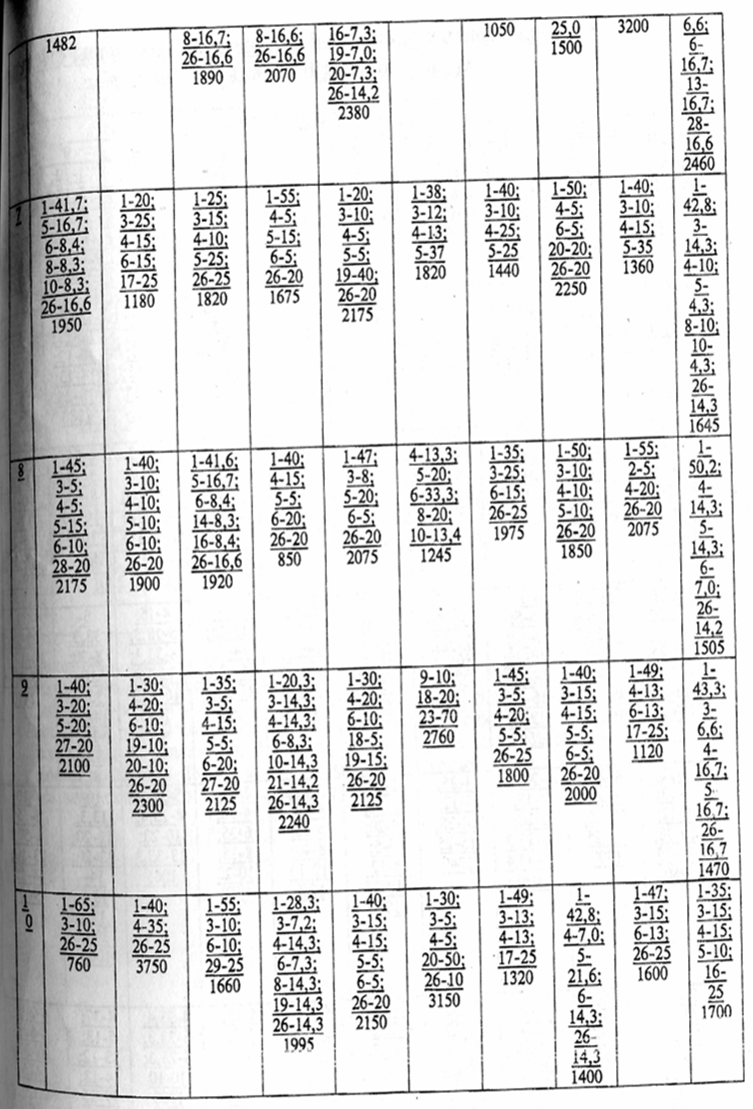 1482
8-16,7;
26-16,6
1890
8-16,6;
26-16,6
2070
16-7,3;
19-7,0;
20-7,3;
26-14,2
2380
1050
25,0
1500
3200
6,6;
6-
16,7;
13-
16,7;
28-
16,6
2460
7
1-41,7;
5-16,7;
6-8,4;
8-8,3;
10-8,3;
26-16,6
1950
1-20;
3-25;
4-15;
6-15;
17-25
1180
1-25;
3-15;
4-10;
5-25;
26-25
1820
1-55;
4-5;
5-15;
6-5;
26-20
1675
1-20;
3-10;
4-5;
5-5;
19-40;
26-20
2175
1-38;
3-12;
4-13;
5-37
1820
1-40;
3-10;
4-25;
5-25
1440
1-50;
4-5;
6-5;
20-20;
26-20
2250
1-40;
3-10;
4-15;
5-35
1360
1-
42,8;
3-
14,3;
4-10;
5-
4,3;
8-10;
10-
4,3;
26-
14,3
1645
8
1-45;
3-5;
4-5;
5-15;
6-10;
28-20
2175
1-40;
3-10;
4-10;
5-10;
6-10;
26-20
1900
1-41,6;
5-16,7;
6-8,4;
14-8,3;
16-8,4;
26-16,6
1920
1-40;
4-15;
5-5;
6-20;
26-20
850
1-47;
3-8;
5-20;
6-5;
26-20
2075
4-13,3;
5-20;
6-33,3;
8-20;
10-13,4
1245
1-35;
3-25;
6-15;
26-25
1975
1-50;
3-10;
4-10;
5-10;
26-20
1850
1-55;
2-5;
4-20;
26-20
2075
1-
50,2;
4-
14,3;
5-
14,3;
6-
7,0;
26-
14,2
1505
9
1-40;
3-20;
5-20;
27-20
2100
1-30;
4-20;
6-10;
19-10;
20-10;
26-20
2300
1-35;
3-5;
4-15;
5-5;
6-20;
27-20
2125
1-20,3;
3-14,3;
4-14,3;
6-8,3;
10-14,3
21-14,2
26-14,3
2240
1-30;
4-20;
6-10;
18-5;
19-15;
26-20
2125
9-10;
18-20;
23-70
2760
1-45;
3-5;
4-20;
5-5;
26-25
1800
1-40;
3-15;
4-15;
5-5;
6-5;
26-20
2000
1-49;
4-13;
6-13;
17-25;
1120
1-
43,3;
3-
6,6;
4-
16,7;
5-
16,7;
26-
16,7
1470
1
0
1-65;
3-10;
26-25
760
1-40;
4-35;
26-25
3750
1-55;
3-10;
6-10;
29-25
1660
1-28,3;
3-7,2;
4-14,3;
6-7,3;
8-14,3;
19-14,3
26-14,3
1995
1-40;
3-15;
4-15;
5-5;
6-5;
26-20
2150
1-30;
3-5;
4-5;
20-50;
26-10
3150
1-49;
3-13;
4-13;
17-25
1320
1-
42,8;
4-7,0;
5-
21,6;
6-
14,3;
26-
14,3
1400
1-47;
3-15;
6-13;
26-25
1600
1-35;
3-15;
4-15;
5-10;
16-
25
1700